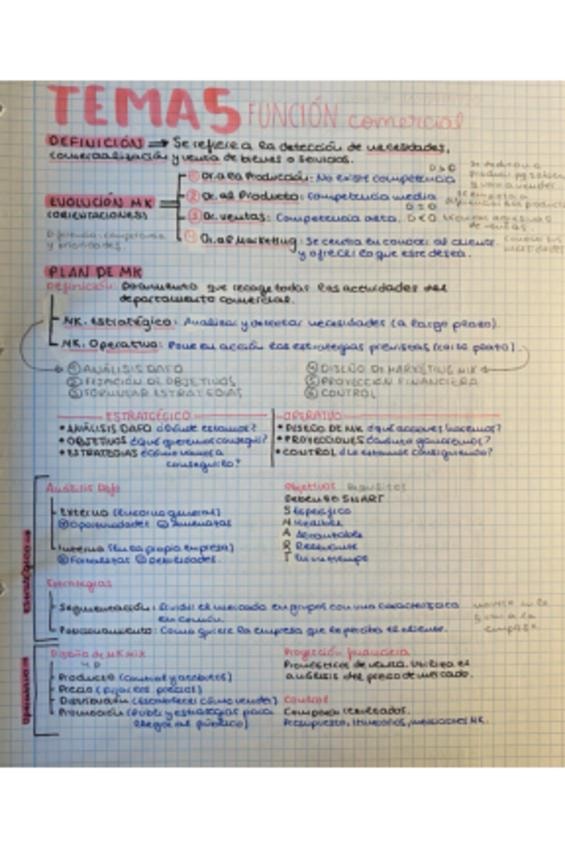 TEMA 5 FUNCIÓN comercial
DEFINICIÓN ⇒ Se refiere a la detección de necesidades,
comercialización y venta de bienes o servicios.
EVOLUCIÓN MK
(ORIENTACIONES)
① Or. a la Producción: No existe competencia D > O
② Or. al Producto: Competencia media D = O
③ Or. ventas: Competencia alta. D < O
④ Or. al Marketing: Se centra en conocer al cliente
y ofrecer lo que este desea.
PLAN DE MK
Definición: Documento que recoge todas las actividades del
departamento comercial.
MK. Estratégico: Analizar y detectar necesidades (a largo plazo).
MK. Operativo: Pone en acción las estrategias previstas (corto plazo).
① ANÁLISIS DAFO
② FIJACIÓN DE OBJETIVOS
③ FORMULAR ESTRATEGIAS
④ DISEÑO DE MARKETING MIX
⑤ PROYECCIÓN FINANCIERA
⑥ CONTROL
ESTRATÉGICO
• ANÁLISIS DAFO ¿dónde estamos?
• OBJETIVOS ¿qué queremos conseguir?
• ESTRATEGIAS ¿cómo vamos a
conseguirlo?
OPERATIVO
• DISEÑO DE MK ¿qué acciones hacemos?
• PROYECCIONES ¿cuánto ganaremos?
• CONTROL ¿lo estamos consiguiendo?
Estratégico
Análisis Dafo
Externo (entorno general)
Oportunidades Amenazas
Interno (en la propia empresa)
Fortalezas Debilidades.
Objetivos Requisitos
Deben ser SMART
S Específico
M Medible
A Alcanzables
R Relevante
T en un tiempo
Estrategias
Segmentación: dividir el mercado en grupos con una característica
en común.
Posicionamiento: Como quiere la empresa que lo perciba el cliente.
Operativo
Diseño de MK mix
4 P
Producto (control y atributos)
Precio (fijar los precios)
Distribución (establecer cómo vender)
Promoción (publi y estrategias para
llegar al público)
Proyección financiera
Pronósticos de venta. Utiliza el
análisis del precio de mercado.
Control
Comparar resultados.
Presupuesto,